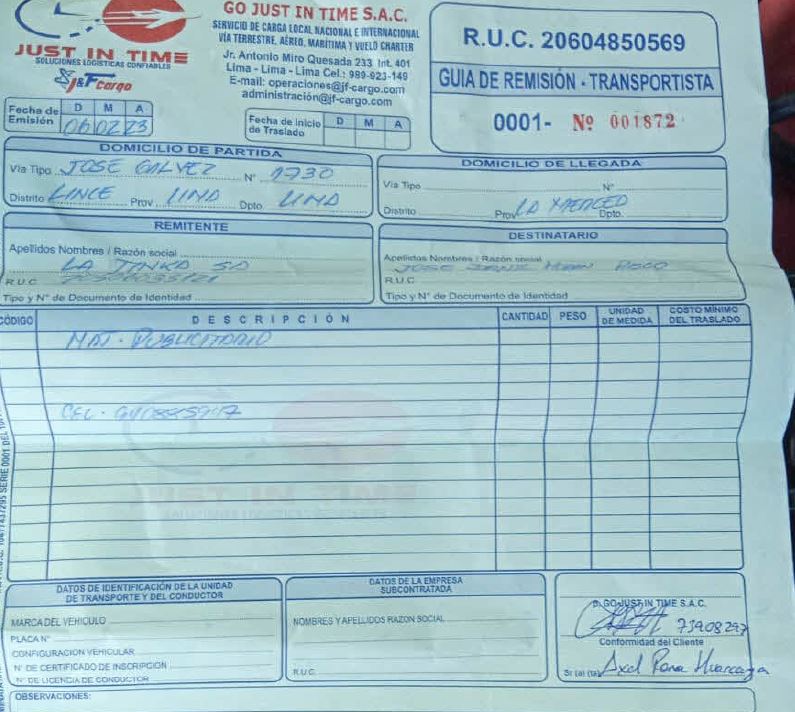 GO JUST IN TIME S.A.C.
SERVICIO DE CARGA LOCAL NACIONAL E INTERNACIONAL
VÍA TERRESTRE, AÉREO, MARÍTIMA Y VUELO CHARTER
Jr. Antonio Miro Quesada 233 Int. 401
Lima - Lima - Lima Cel.: 989-923-149
E-mail: operaciones@jf-cargo.com
administración@jf-cargo.com
JUST IN TIME
SOLUCIONES LOGISTICAS CONFIABLES
J&F cargo
R.U.C. 20604850569
GUIA DE REMISIÓN - TRANSPORTISTA
0001- Nº 001872
Fecha de Emisión D M A
06 02 23
Fecha de Inicio de Traslado D M A
DOMICILIO DE PARTIDA
Vía Tipo JOSE GALVEZ Nº 1730
Distrito LINCE Prov. LIMA Dpto. LIMA
DOMICILIO DE LLEGADA
Vía Tipo Nº
Distrito Prov. LA MERCED Dpto.
REMITENTE
Apellidos Nombres / Razón social
LA TINKA SA
R.U.C.
Tipo y Nº de Documento de Identidad
DESTINATARIO
Apellidos Nombres / Razón social
JOSE
R.U.C.
Tipo y Nº de Documento de Identidad
CÓDIGO DESCRIPCIÓN CANTIDAD PESO UNIDAD DE MEDIDA COSTO MÍNIMO DEL TRASLADO
MAT. PUBLICITARIO
CEL.
JUST IN TIME
SOLUCIONES LOGISTICAS CONFIABLES
DATOS DE IDENTIFICACIÓN DE LA UNIDAD
DE TRANSPORTE Y DEL CONDUCTOR
MARCA DEL VEHICULO
PLACA Nº
CONFIGURACION VEHICULAR
Nº DE CERTIFICADO DE INSCRIPCIÓN
Nº DE LICENCIA DE CONDUCTOR
DATOS DE LA EMPRESA
SUBCONTRATADA
NOMBRES Y APELLIDOS RAZON SOCIAL
R.U.C.
P. GO JUST IN TIME S.A.C.
73908297
Conformidad del Cliente
Sr (a) (ta) Axel
OBSERVACIONES: